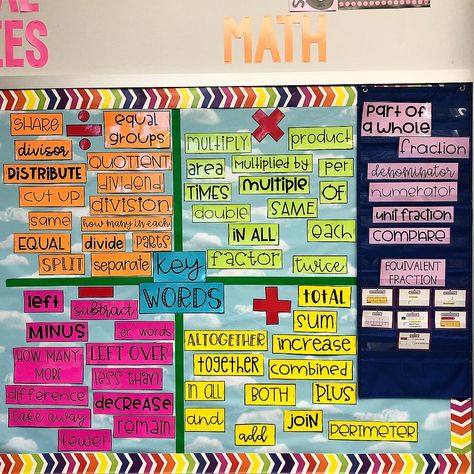 EES
MATH
SHARE
equal
groups
divisor
QUOTIENT
DISTRIBUTE
dividend
CUT UP
division
same
how many in each
EQUAL
divide
parts
SPLIT
separate
MULTIPLY
product
area
multiplied by
PER
TIMES
multiple
OF
double
SAME
IN ALL
each
factor
twice
KEY
WORDS
left
subtract
MINUS
er words
HOW MANY
MORE
LEFT OVER
less than
difference
decrease
take away
remain
fewer
TOTAL
sum
ALTOGETHER
increase
together
combined
in all
BOTH
PLUS
and
JOIN
add
PERIMETER
Part of
a whole
fraction
denominator
numerator
unit fraction
COMPARE
EQUIVALENT
FRACTION